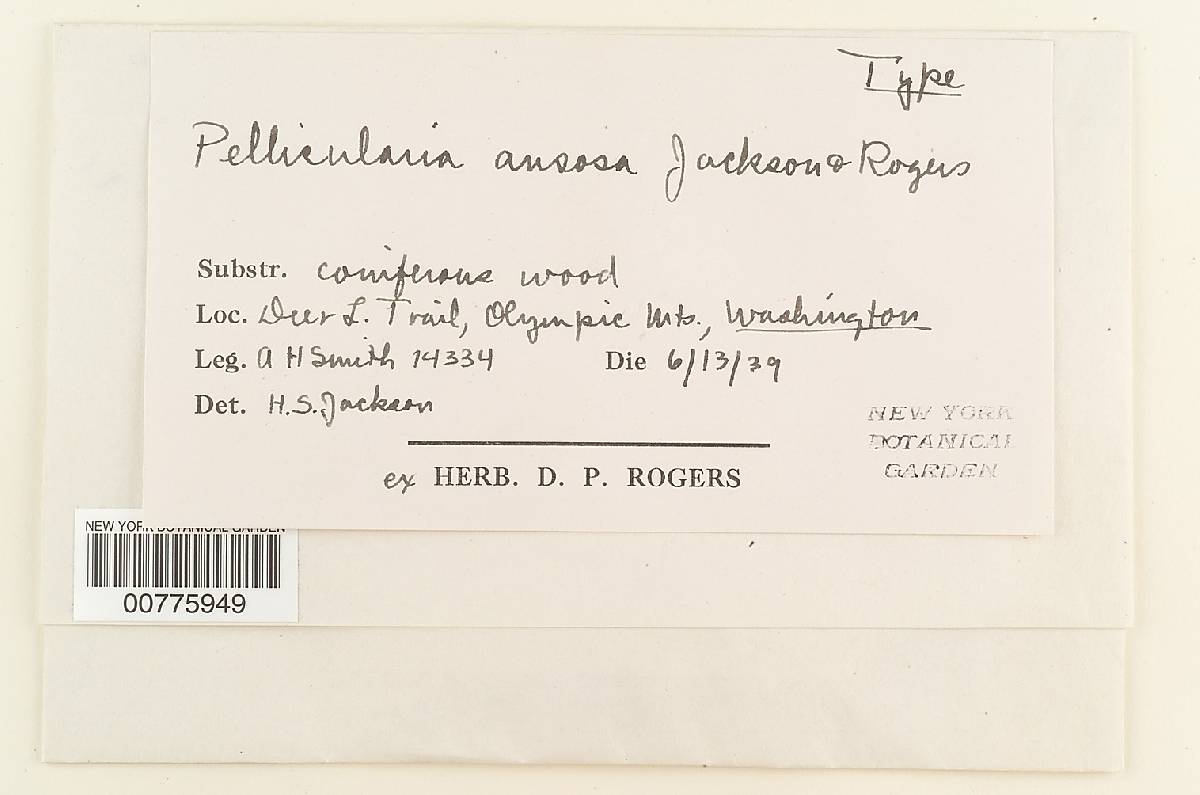 Type
Pellicularia ansosa Jackson & Rogers
Substr. coniferous wood
Loc. Deer L. Trail, Olympic Mts., Washington
Leg. A H Smith 14334 Die 6/13/39
Det. H.S. Jackson
NEW YORK
BOTANICAL
GARDEN
ex HERB. D. P. ROGERS
NEW YORK BOTANICAL GARDEN
00775949